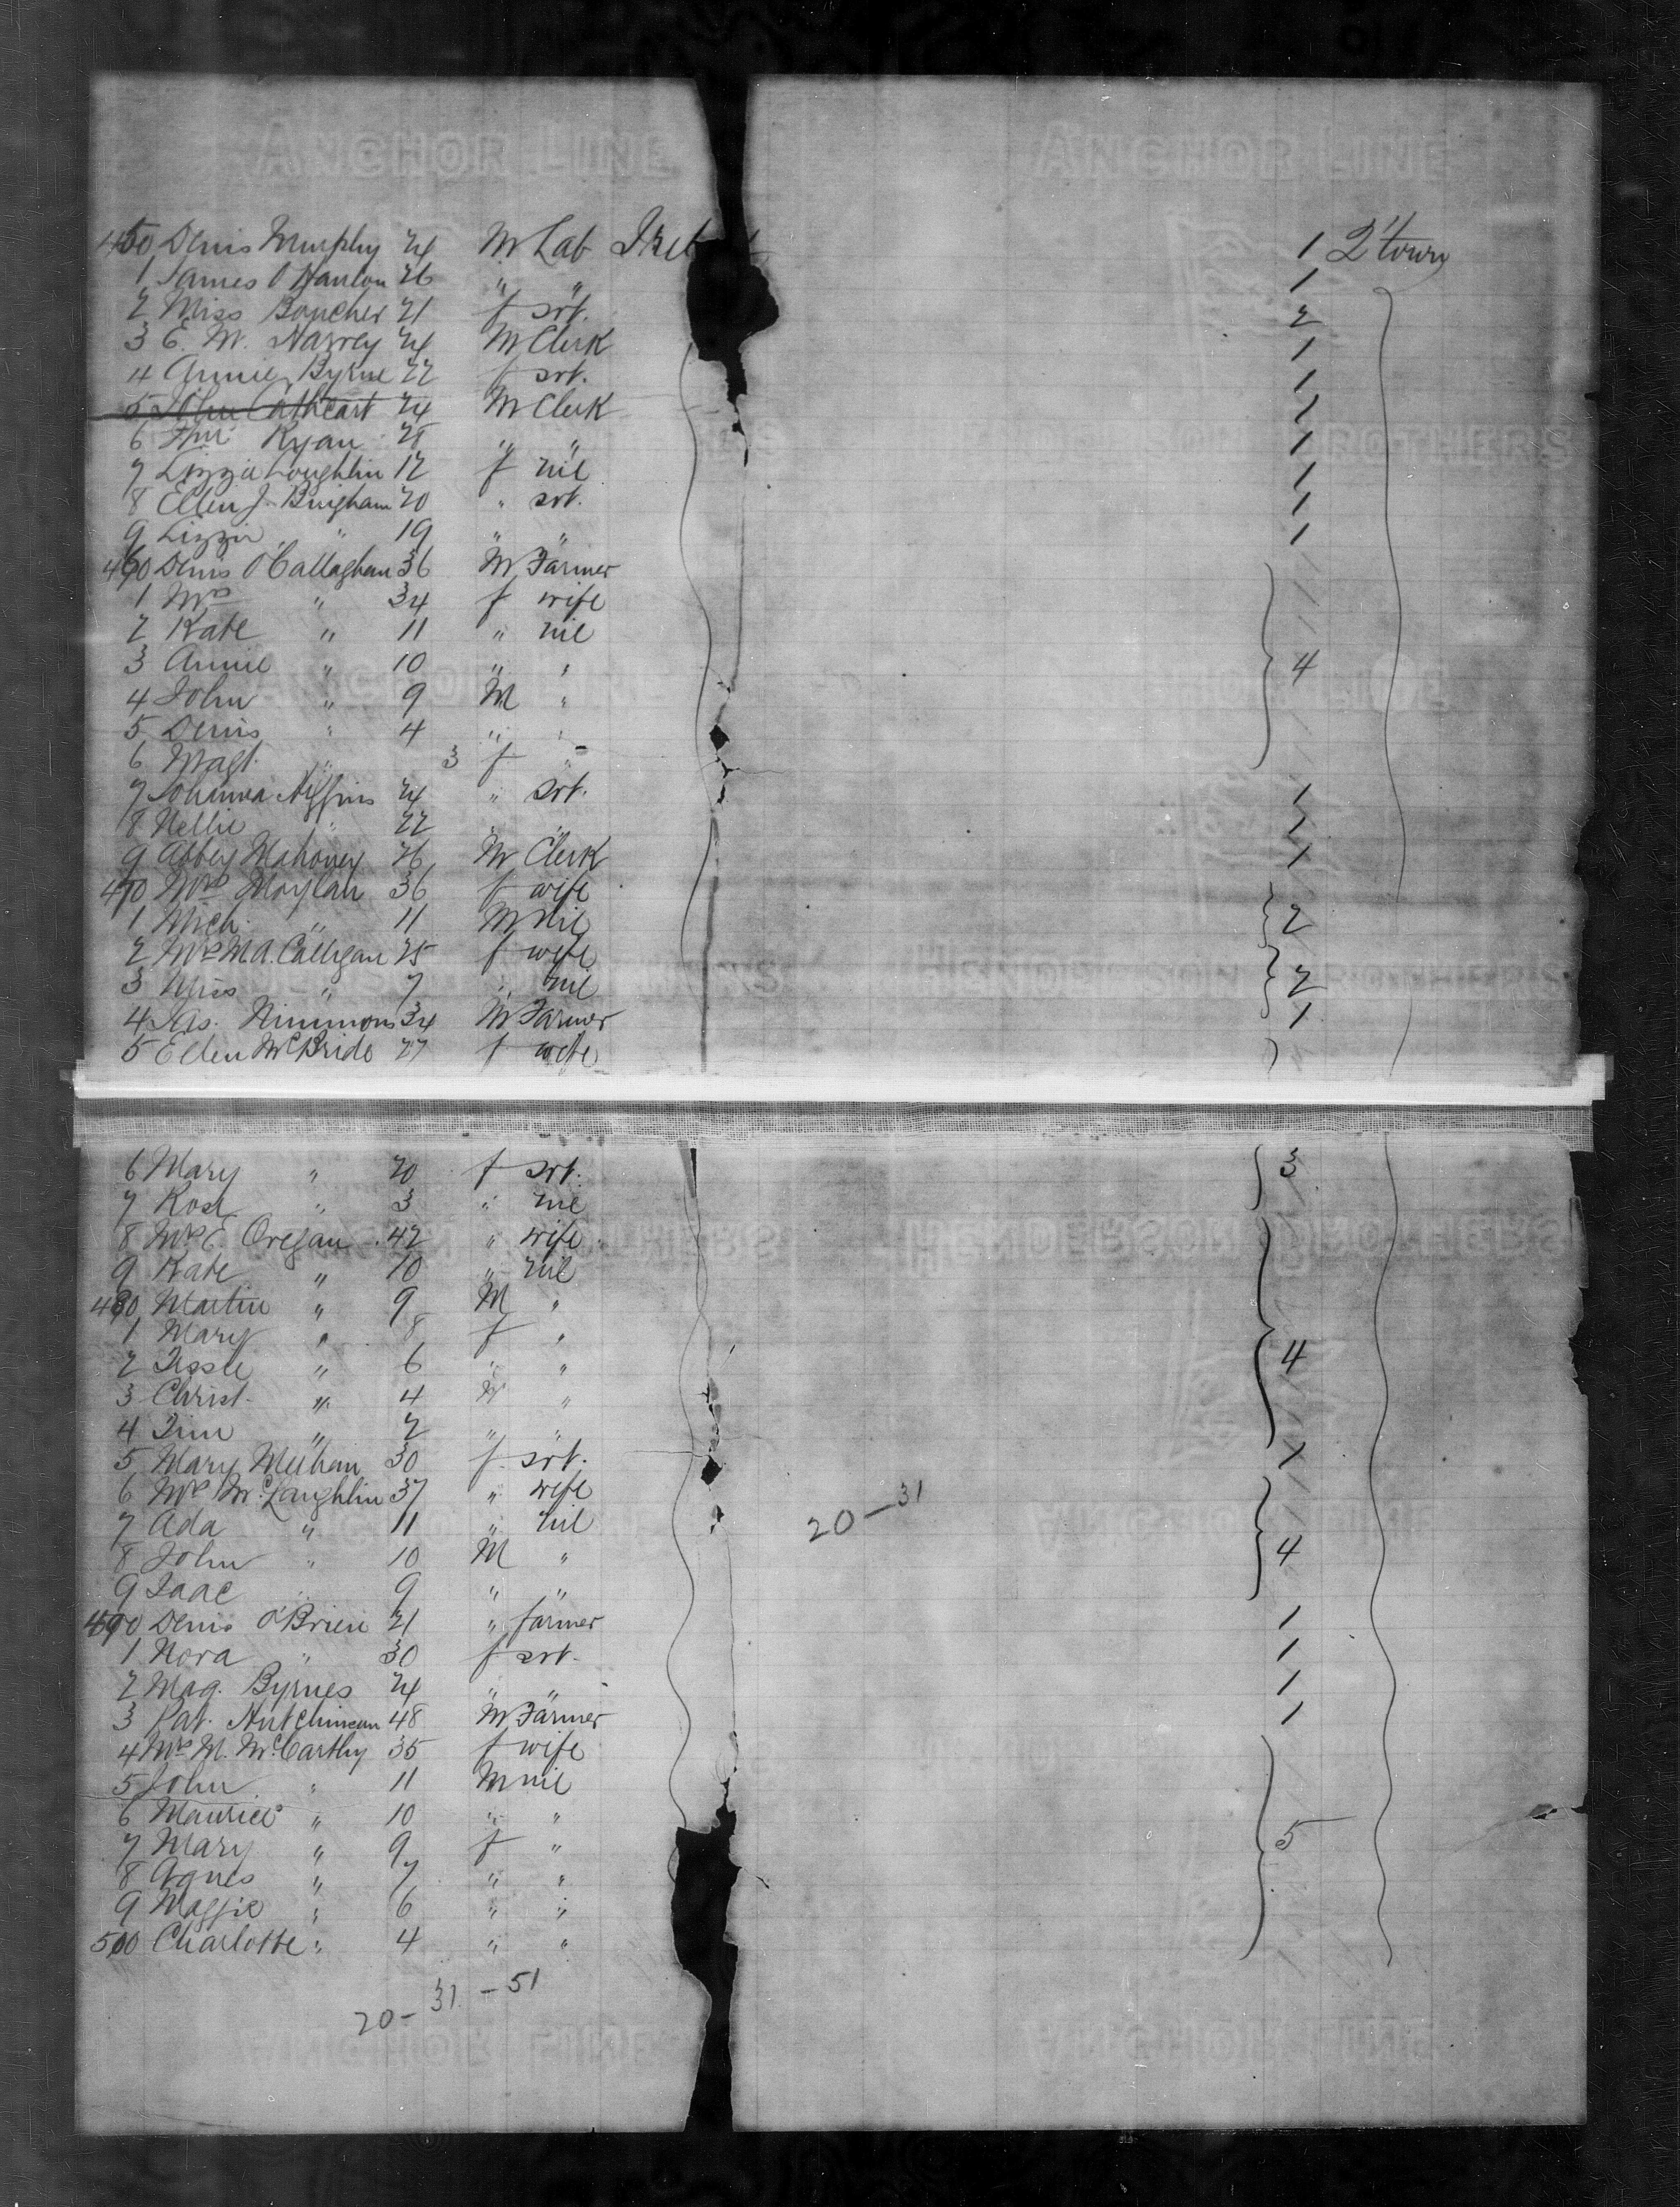 ANCHOR LINE ANCHOR LINE
450 Denis Murphy 24 M Lab Irel 1 2' town
1 James O'Hanlon 26 " " 1
2 Miss Boucher 21 f srt. 2
3 E. M. 24 M Clerk 1
4 Annie Byrne 22 f srt. 1
5 John Cathcart 24 M Clerk 1
6 Ryan 28 " " 1
7 Lizzie Loughlin 12 f nil 1
8 Ellen J. Bingham 20 " srt. 1
9 Lizzie " 19 " " 1
460 Denis O'Callaghan 36 M Farmer
1 Mrs " 34 f wife
2 Kate " 11 " nil
3 Annie " 10 " " 4
4 John " 9 M "
5 Denis " 4 " "
6 Magt. " 3 f "
7 Johanna 24 " srt. 1
8 Nellie " 22 " " 1
9 Abbey Mahoney 26 M Clerk 1
470 Mrs Moylan 36 f wife
1 Mich " 11 M nil 2
2 Mrs M.A. Calligan 25 f wife
3 Miss " 7 " nil 2
4 Jas. Nimmons 34 M Farmer 1
5 Ellen McBride 27 f wife
6 Mary " 20 f srt. 3
7 Rose " 3 " nil
8 Mrs E. Oregan 42 " wife
HENDERSON BROTHERS
9 Kate " 10 " nil
480 Martin " 9 M "
1 Mary " 8 f "
2 Jessie " 6 " " 4
3 Christ. " 4 M "
4 Tim " 2 " "
5 Mary Meehan 30 f srt. 1
6 Mrs McLaughlin 37 " wife
7 Ada " 11 " nil 20-31
8 John " 10 M " 4
9 Isaac " 9 " "
490 Denis O'Brien 21 " farmer 1
1 Nora " 30 f srt. 1
2 Mag. Byrnes 24 " " 1
3 Pat. Hutchinson 48 M Farmer 1
4 Mrs M. McCarthy 35 f wife
5 John " 11 M nil
6 Maurice " 10 " "
7 Mary " 9 f " 5
8 Agnes " 7 " "
9 Maggie " 6 " "
500 Charlotte " 4 " "
20-31-51